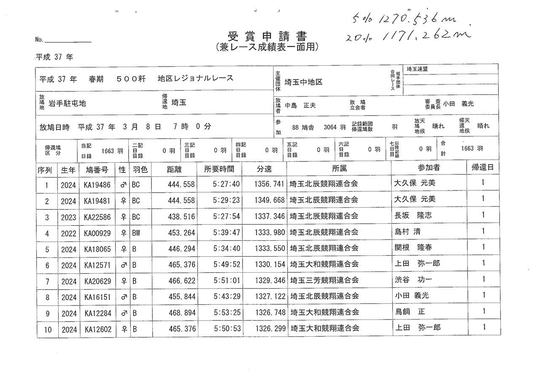 5% 1270.536m
20% 1171.262m
受賞申請書
(兼レース成績表一面用)
No.
平成 37 年
平成 37 年 春期 500粁 地区レジョナルレース 主催団体 埼玉中地区 埼玉連盟
放鳩地 岩手駐屯地 帰還地 埼玉 放鳩者 中島 正夫 放鳩立会者 審査委員長 小田 義光
放鳩日時 平成 37 年 3 月 8 日 7 時 0 分 参加 88 鳩舎 3064 羽 記録範囲帰還羽数 羽 放鳩地天候 晴れ 帰還地天候 晴れ
帰還羽数区分 当日記録 1663 羽 二日目記録 羽 三日目記録 羽 四日目記録 羽 五日目記録 羽 六日目記録 羽 合計 1663 羽
序列 生年 鳩番号 性 羽色 距離 所要時間 分速 所属 参加者 帰還日
1 2024 KA19486 ♂ BC 444.558 5:27:40 1356.741 埼玉北辰競翔連合会 大久保 元美 1
2 2024 KA19481 ♀ BC 444.558 5:29:23 1349.668 埼玉北辰競翔連合会 大久保 元美 1
3 2023 KA22586 ♀ BC 438.516 5:27:54 1337.346 埼玉北辰競翔連合会 長坂 隆志 1
4 2022 KA00929 ♀ BW 453.264 5:39:47 1333.980 埼玉北辰競翔連合会 島村 清 1
5 2024 KA18065 ♀ B 446.294 5:34:40 1333.550 埼玉北辰競翔連合会 関根 隆春 1
6 2024 KA12571 ♂ B 465.376 5:49:52 1330.154 埼玉大和競翔連合会 上田 弥一郎 1
7 2024 KA20629 ♀ B 466.622 5:51:01 1329.346 埼玉三芳競翔連合会 渋谷 功一 1
8 2024 KA16151 ♂ B 455.844 5:43:29 1327.122 埼玉北辰競翔連合会 小田 義光 1
9 2024 KA12284 ♂ B 468.894 5:53:25 1326.748 埼玉大和競翔連合会 鳥飼 正 1
10 2024 KA12602 ♀ B 465.376 5:50:53 1326.299 埼玉大和競翔連合会 上田 弥一郎 1